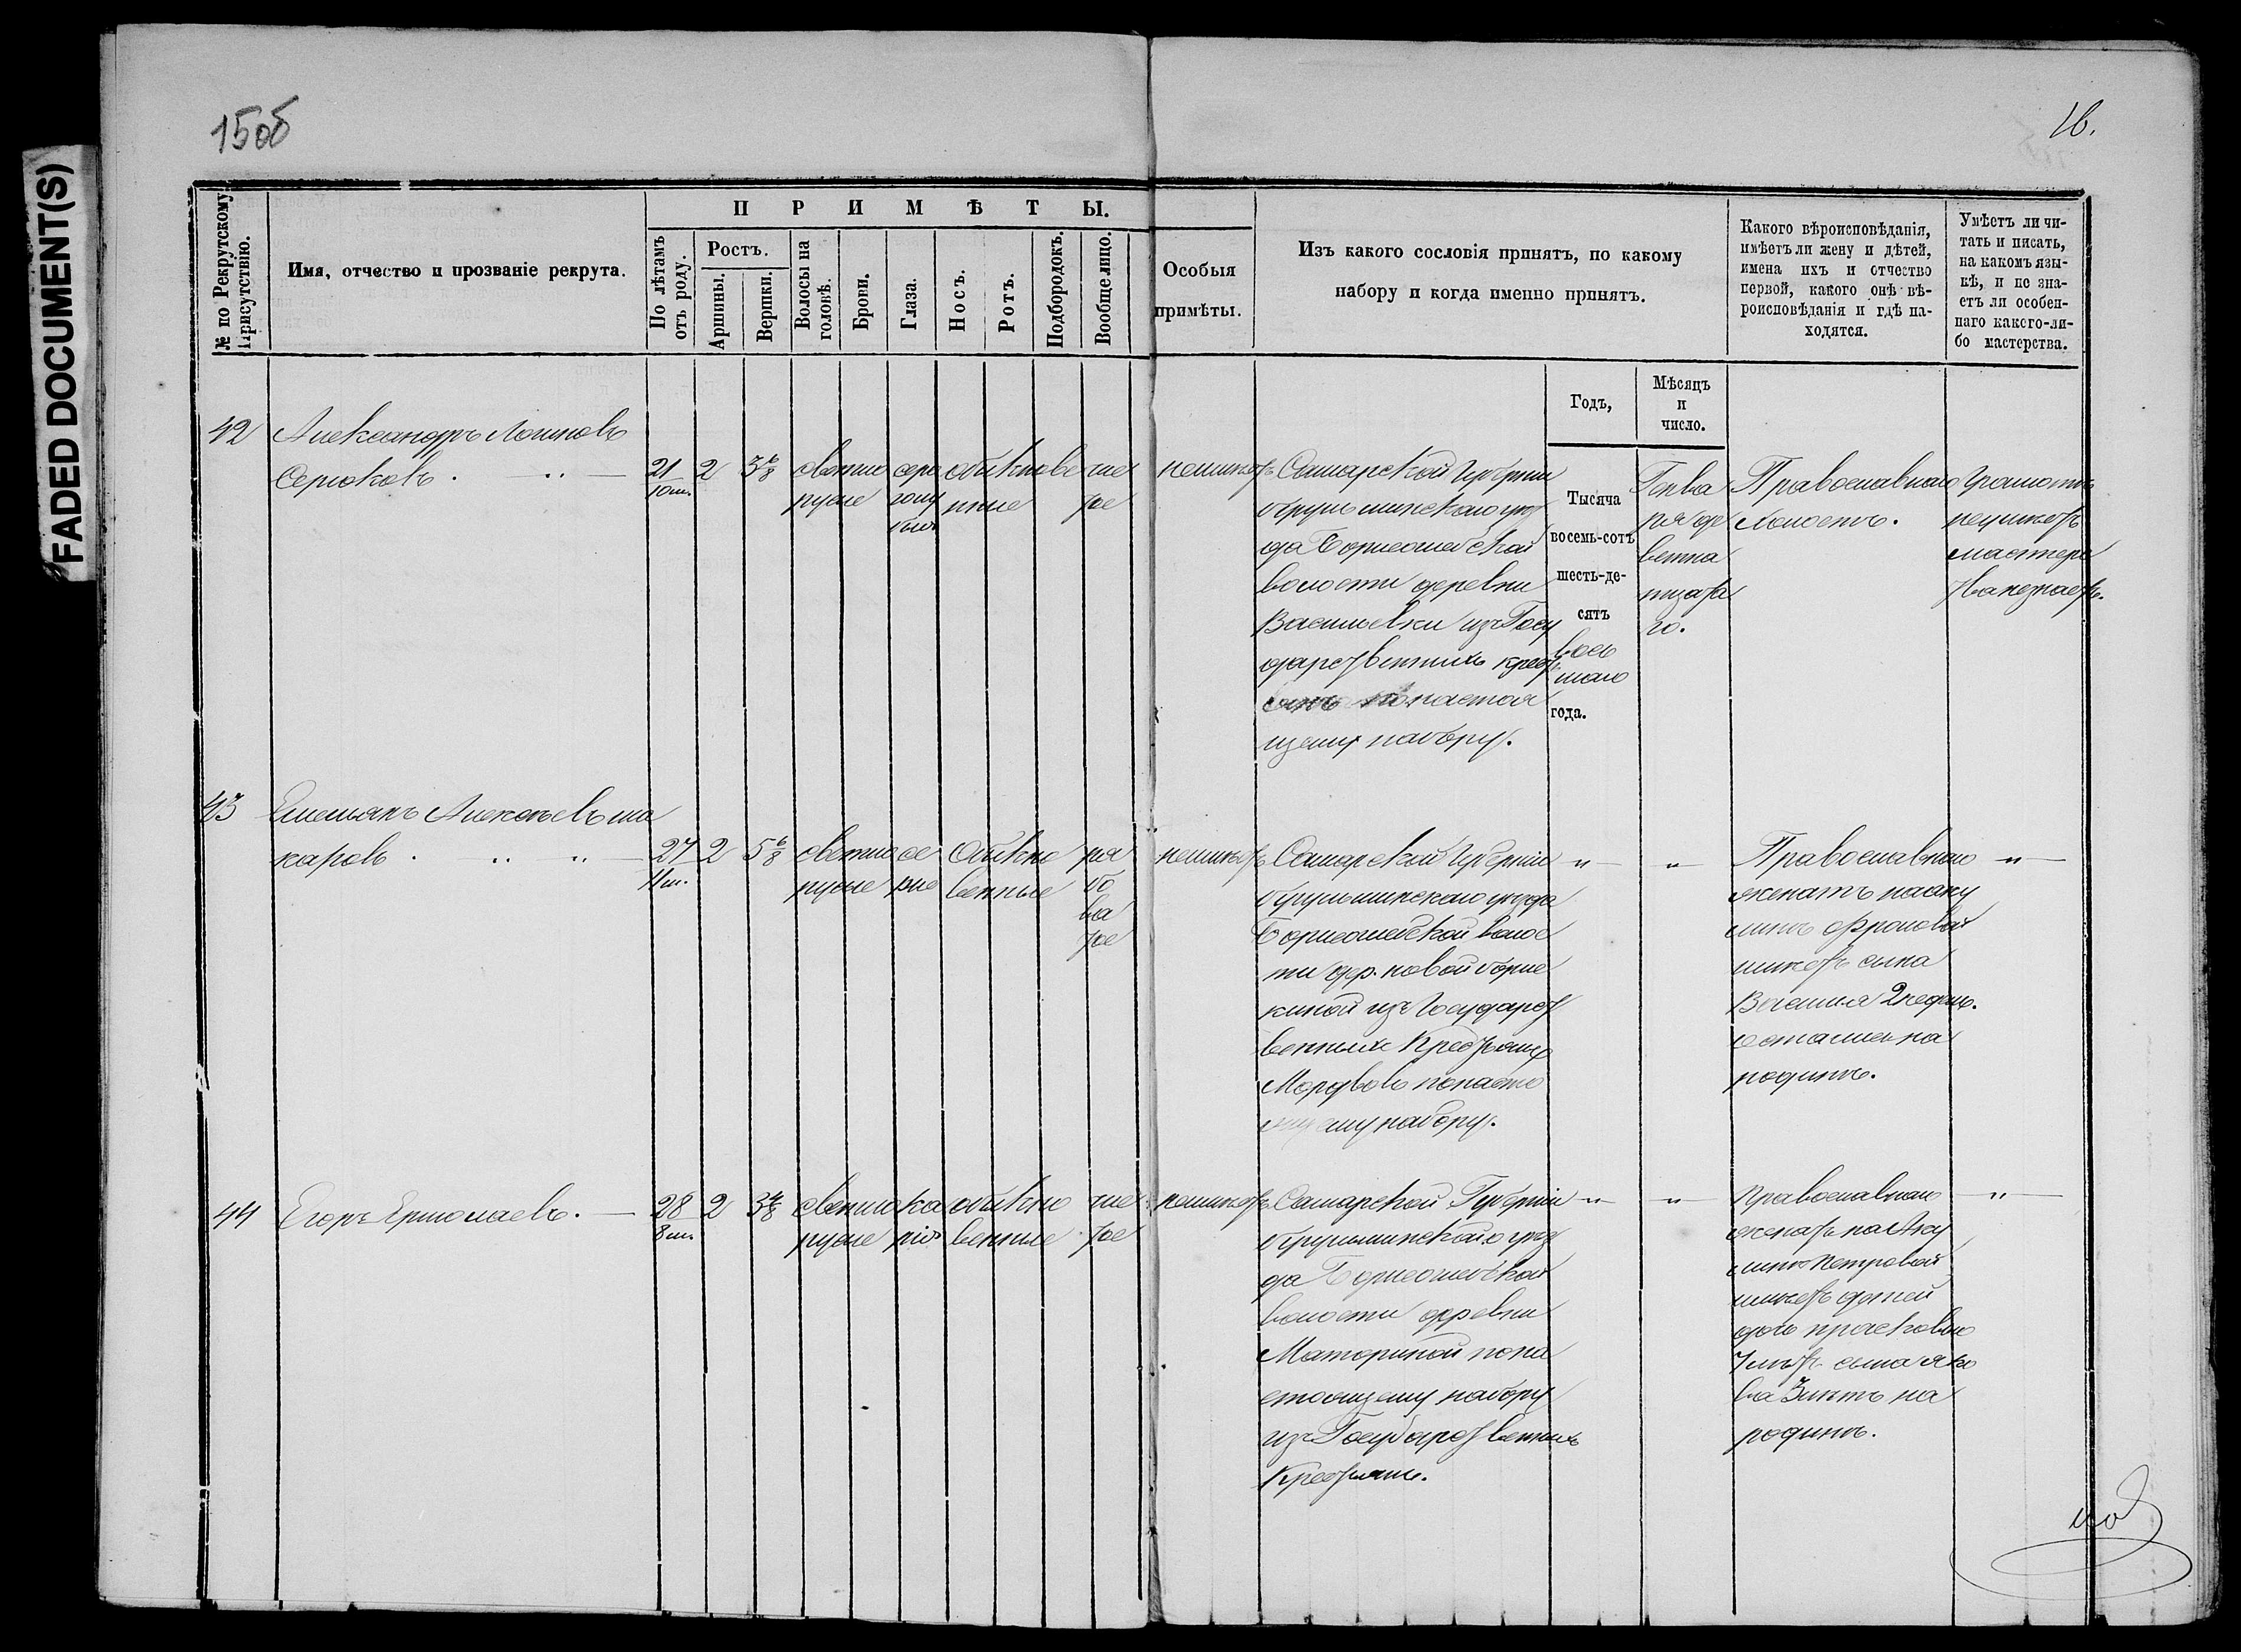 FADED DOCUMENT(S)
15об
16.
№ по Рекрутскому
Присутствію.
Имя, отчество и прозваніе рекрута.
ПРИМѢТЫ.
По лѣтамъ
отъ роду.
Ростъ.
Аршины.
Вершки.
Волосы на
головѣ.
Брови.
Глаза.
Носъ.
Ротъ.
Подбородокъ.
Вообще лицо.
Особыя
примѣты.
Изъ какого сословія принятъ, по какому
набору и когда именно принятъ.
Какого вѣроисповѣданія,
имѣетъ ли жену и дѣтей,
имена ихъ и отчество
первой, какого онѣ вѣ-
роисповѣданія и гдѣ на-
ходятся.
Умѣетъ ли чи-
тать и писать,
на какомъ язы-
кѣ, и не зна-
етъ ли особен-
наго какого-ли-
бо мастерства.
Годъ,
Мѣсяцъ
и
число.
42
Александръ Логиновъ
Серюковъ.
21
10 м.
2
3 6/8
светло
русые
серо
голу
бые
обыкнове
нные
чис
тое
неимеетъ
Самарской Губернии
бугульминскаго уез
да
волости деревни
Васильевки изъ Госу
дарственныхъ крест
янъ по настоя
щему набору.
Тысяча
восемь-сотъ
шесть-де-
сятъ
вось
маго
года.
Генва
ря де
вятна
тцата
го.
Православнаго
Холостъ.
Грамоте
неумеетъ
мастерс
тва незнаетъ.
43
Емельянъ Алексеевъ ма
каровъ.
27
11 м.
2
5 6/8
светло
русые
се
рые
Обыкно
венные
ря
бо
ва
тое
неимеетъ
Самарской Губерніи
бугульминскаго уезда
волос
ти дер. новой
киной изъ Государст
венныхъ Крестьянъ
Мордвовъ понасто
ящему набору.
Православнаго
женатъ на аку
лине Фроловой
имеетъ сына
Василия 2 недель.
остались на
родине.
44
Егоръ Ермолаевъ.
28
8 м.
2
3 4/8
светло
русые
ка
ріе
обыкно
венные
чис
тое
неимеетъ
Самарской Губерніи
бугульминскаго уез
да
волости деревни
Маториной пона
стоящему набору
изъ Государственныхъ
Крестьянъ.
Православнаго
женатъ на Аку
лине Петровой
имеетъ детей
дочь прасковью
7 летъ сына яко
ва 3 летъ на
родине.